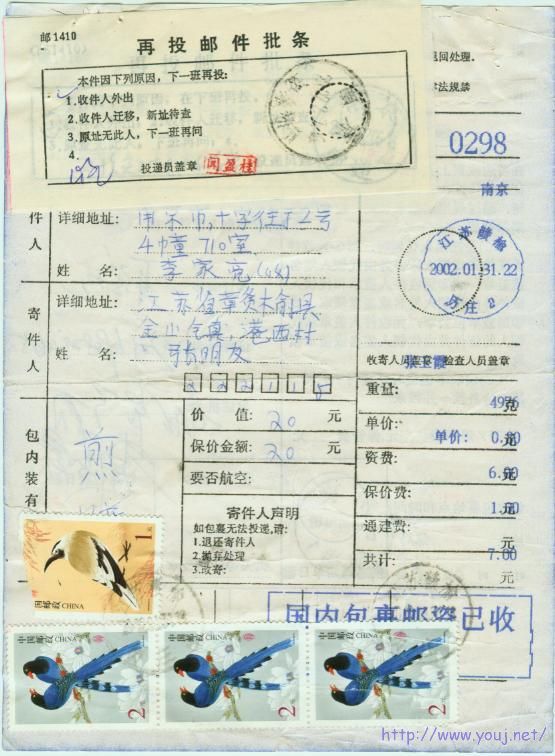 邮1410
再投邮件批条
本件因下列原因，下一班再投：
1.收件人外出
2.收件人迁移，新址待查
3.原址无此人，下一班再问
4.
投递员盖章
退回处理。
0298
南京
件人
详细地址：
4幢710室
姓 名：
李家亮
江苏赣榆
2002.01.31.22
寄件人
详细地址：
金山镇 港西村
姓 名：
张明友
222115
收寄人员盖章 检查人员盖章
张玉霞
重量：
克
价 值：
20
元
单价：
单价：
元
保价金额：
20
元
资费：
6.00
元
要否航空：
保价费：
1.00
元
寄件人声明
如包裹无法投递，请：
1.退还寄件人
2.抛弃处理
3.改寄：
通建费：
元
共计：
7.00
元
包内装有
煎
国内包裹邮资已收
1元
中国邮政 CHINA
中国邮政 CHINA
2元
中国邮政 CHINA
2元
中国邮政 CHINA
2元
http://www.youj.net/